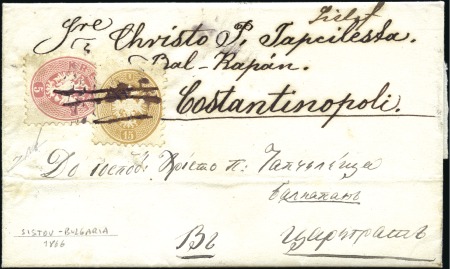 Sre Christo P. Tapcilesta.
Bal-Kapán.
Costantinopoli.
5
15
До господ: Христо п: Тапчилѣща
Балкапанъ
Въ Цариградъ
SISTOV - BULGARIA
1866